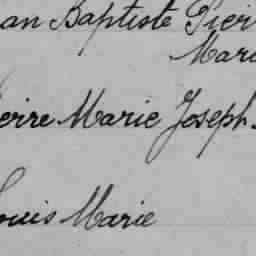 an Baptiste Pier
Mari
ierre Marie Joseph
ouis Marie